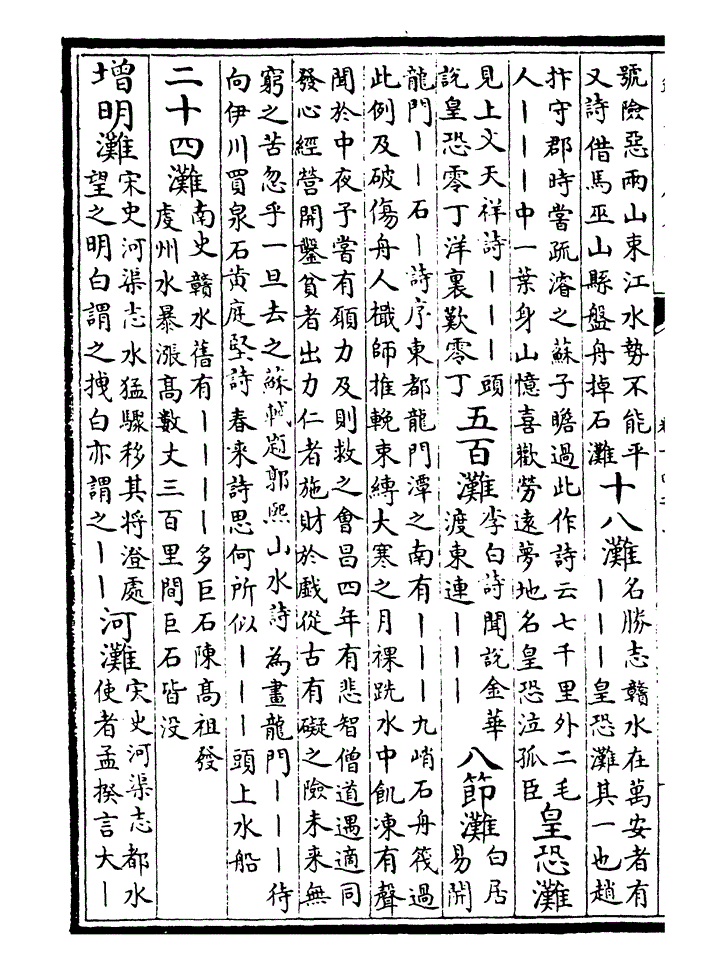 號險惡兩山束江水勢不能平
又詩借馬巫山縣盤舟掉石灘
十八灘
名勝志贛水在萬安者有
丨丨丨皇恐灘其一也趙
抃守郡時嘗疏濬之蘇子瞻過此作詩云七千里外二毛
人丨丨丨中一葉身山憶喜歡勞遠夢地名皇恐泣孤臣
皇恐灘
見上文天祥詩丨丨丨頭
說皇恐零丁洋裏歎零丁
五百灘
李白詩聞說金華
渡東連丨丨丨
八節灘
白居
易開
龍門丨丨石丨詩序東都龍門潭之南有丨丨丨九峭石舟筏過
此例及破傷舟人檝師推輓束縛大寒之月裸跣水中飢凍有聲
聞於中夜予嘗有願力及則救之會昌四年有悲智僧道遇適同
發心經營開鑿貧者出力仁者施財於戲從古有礙之險未来無
窮之苦忽乎一旦去之蘇軾題郭熙山水詩為畫龍門丨丨丨待
向伊川買泉石黃庭堅詩春来詩思何所似丨丨丨頭上水船
二十四灘
南史贛水舊有丨丨丨丨多巨石陳高祖發
虔州水暴漲高數丈三百里間巨石皆没
增明灘
宋史河渠志水猛驟移其將澄處
望之明白謂之拽白亦謂之丨丨
河灘
宋史河渠志都水
使者孟揆言大丨